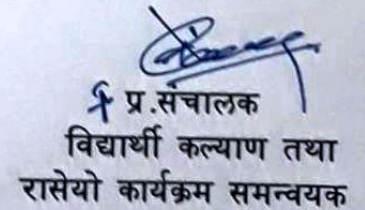 प्र.संचालक
विद्यार्थी कल्याण तथा
रासेयो कार्यक्रम समन्वयक